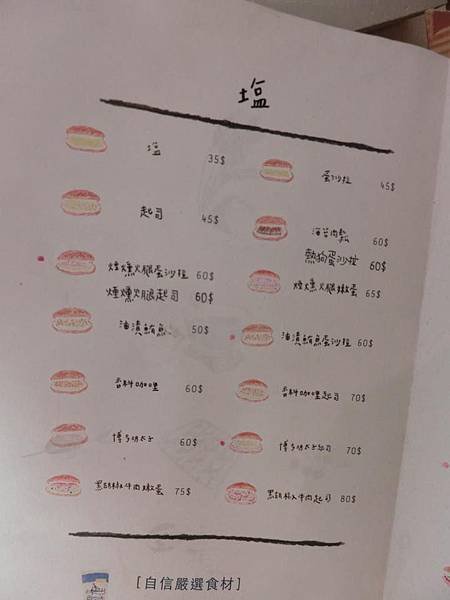 塩
塩 35$
蛋沙拉 45$
起司 45$
海苔肉鬆 60$
熱狗蛋沙拉 60$
煙燻火腿蛋沙拉 60$
煙燻火腿起司 60$
煙燻火腿嫩蛋 65$
油漬鮪魚 50$
油漬鮪魚蛋沙拉 60$
香料咖哩 60$
香料咖哩起司 70$
博多明太子 60$
博多明太子起司 70$
黑胡椒牛肉嫩蛋 75$
黑胡椒牛肉起司 80$
[自信嚴選食材]